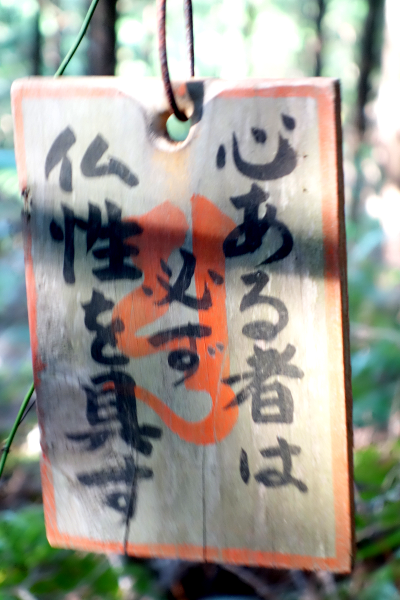 心ある者は
必ず
仏性を具す